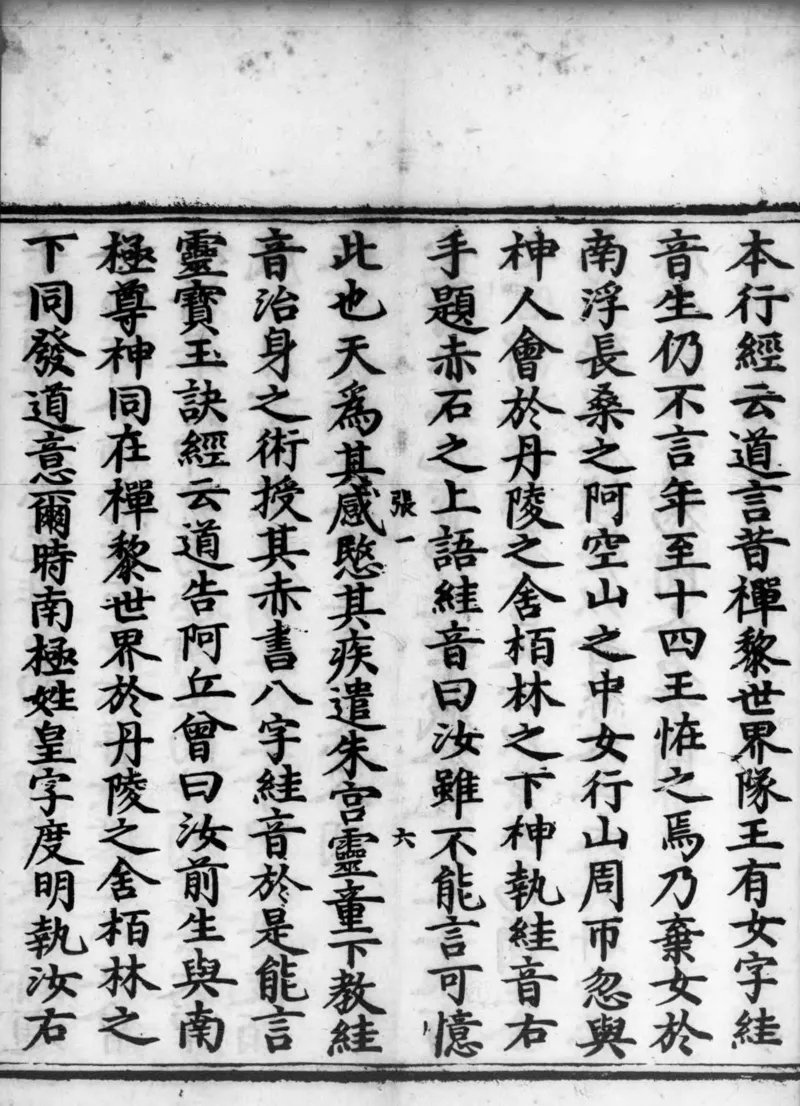 本行經云道言昔禪黎世界隊王有女字絓
音生仍不言年至十四王恠之焉乃棄女於
南浮長桑之阿空山之中女行山周帀忽與
神人會於丹陵之舍栢林之下神執絓音右
手題赤石之上語絓音曰汝雖不能言可憶
張一 六
此也天爲其感愍其疾遣朱宮靈童下教絓
音治身之術授其赤書八字絓音於是能言
靈寶玉訣經云道告阿丘曾曰汝前生與南
極尊神同在禪黎世界於丹陵之舍栢林之
下同發道意爾時南極姓皇字度明執汝右